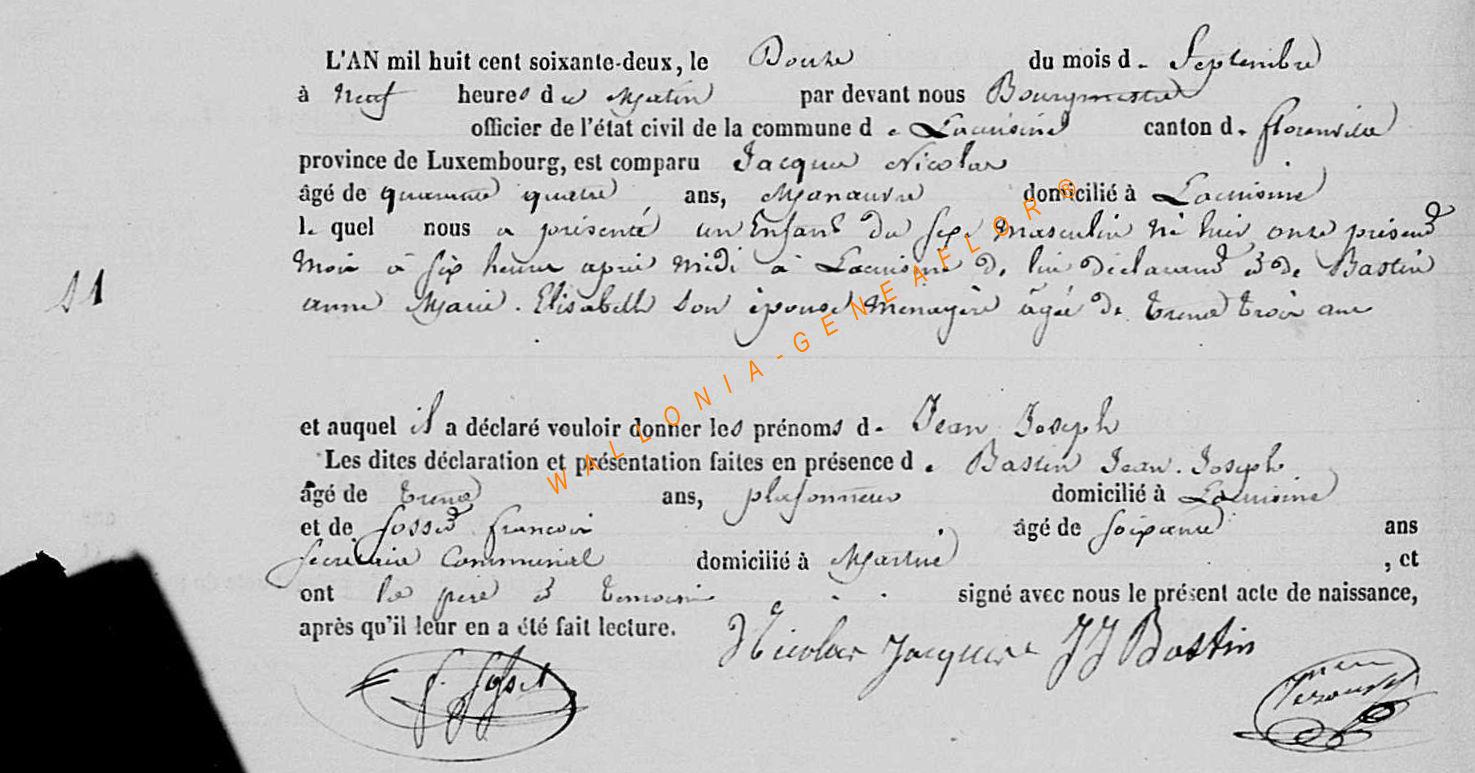 L'AN mil huit cent soixante-deux, le Douze du mois d. Septembre
à Neuf heures du Matin par devant nous Bourgmestre
officier de l'état civil de la commune de Lacuisine canton d. florenville
province de Luxembourg, est comparu Jacques Nicolas
âgé de quarante quatre ans, Manœuvre domicilié à Lacuisine
le quel nous a présenté un Enfant du sexe masculin né hier onze présent
Mois à six heures après Midi à Lacuisine de lui déclarant & de Bastin
anne Marie. Elisabeth son épouse Menagère âgée de trente trois ans
11
et auquel il a déclaré vouloir donner les prénoms de Jean Joseph
Les dites déclaration et présentation faites en présence de Bastin Jean. Joseph
âgé de trente ans, plafonneur domicilié à Lacuisine
et de fosset francois âgé de soixante ans
secrétaire Communal domicilié à Martué, et
ont le père & temoins signé avec nous le présent acte de naissance,
après qu'il leur en a été fait lecture.
Nicolas Jacques JJ Bastin
WALLONIA-GENEAFLOR®